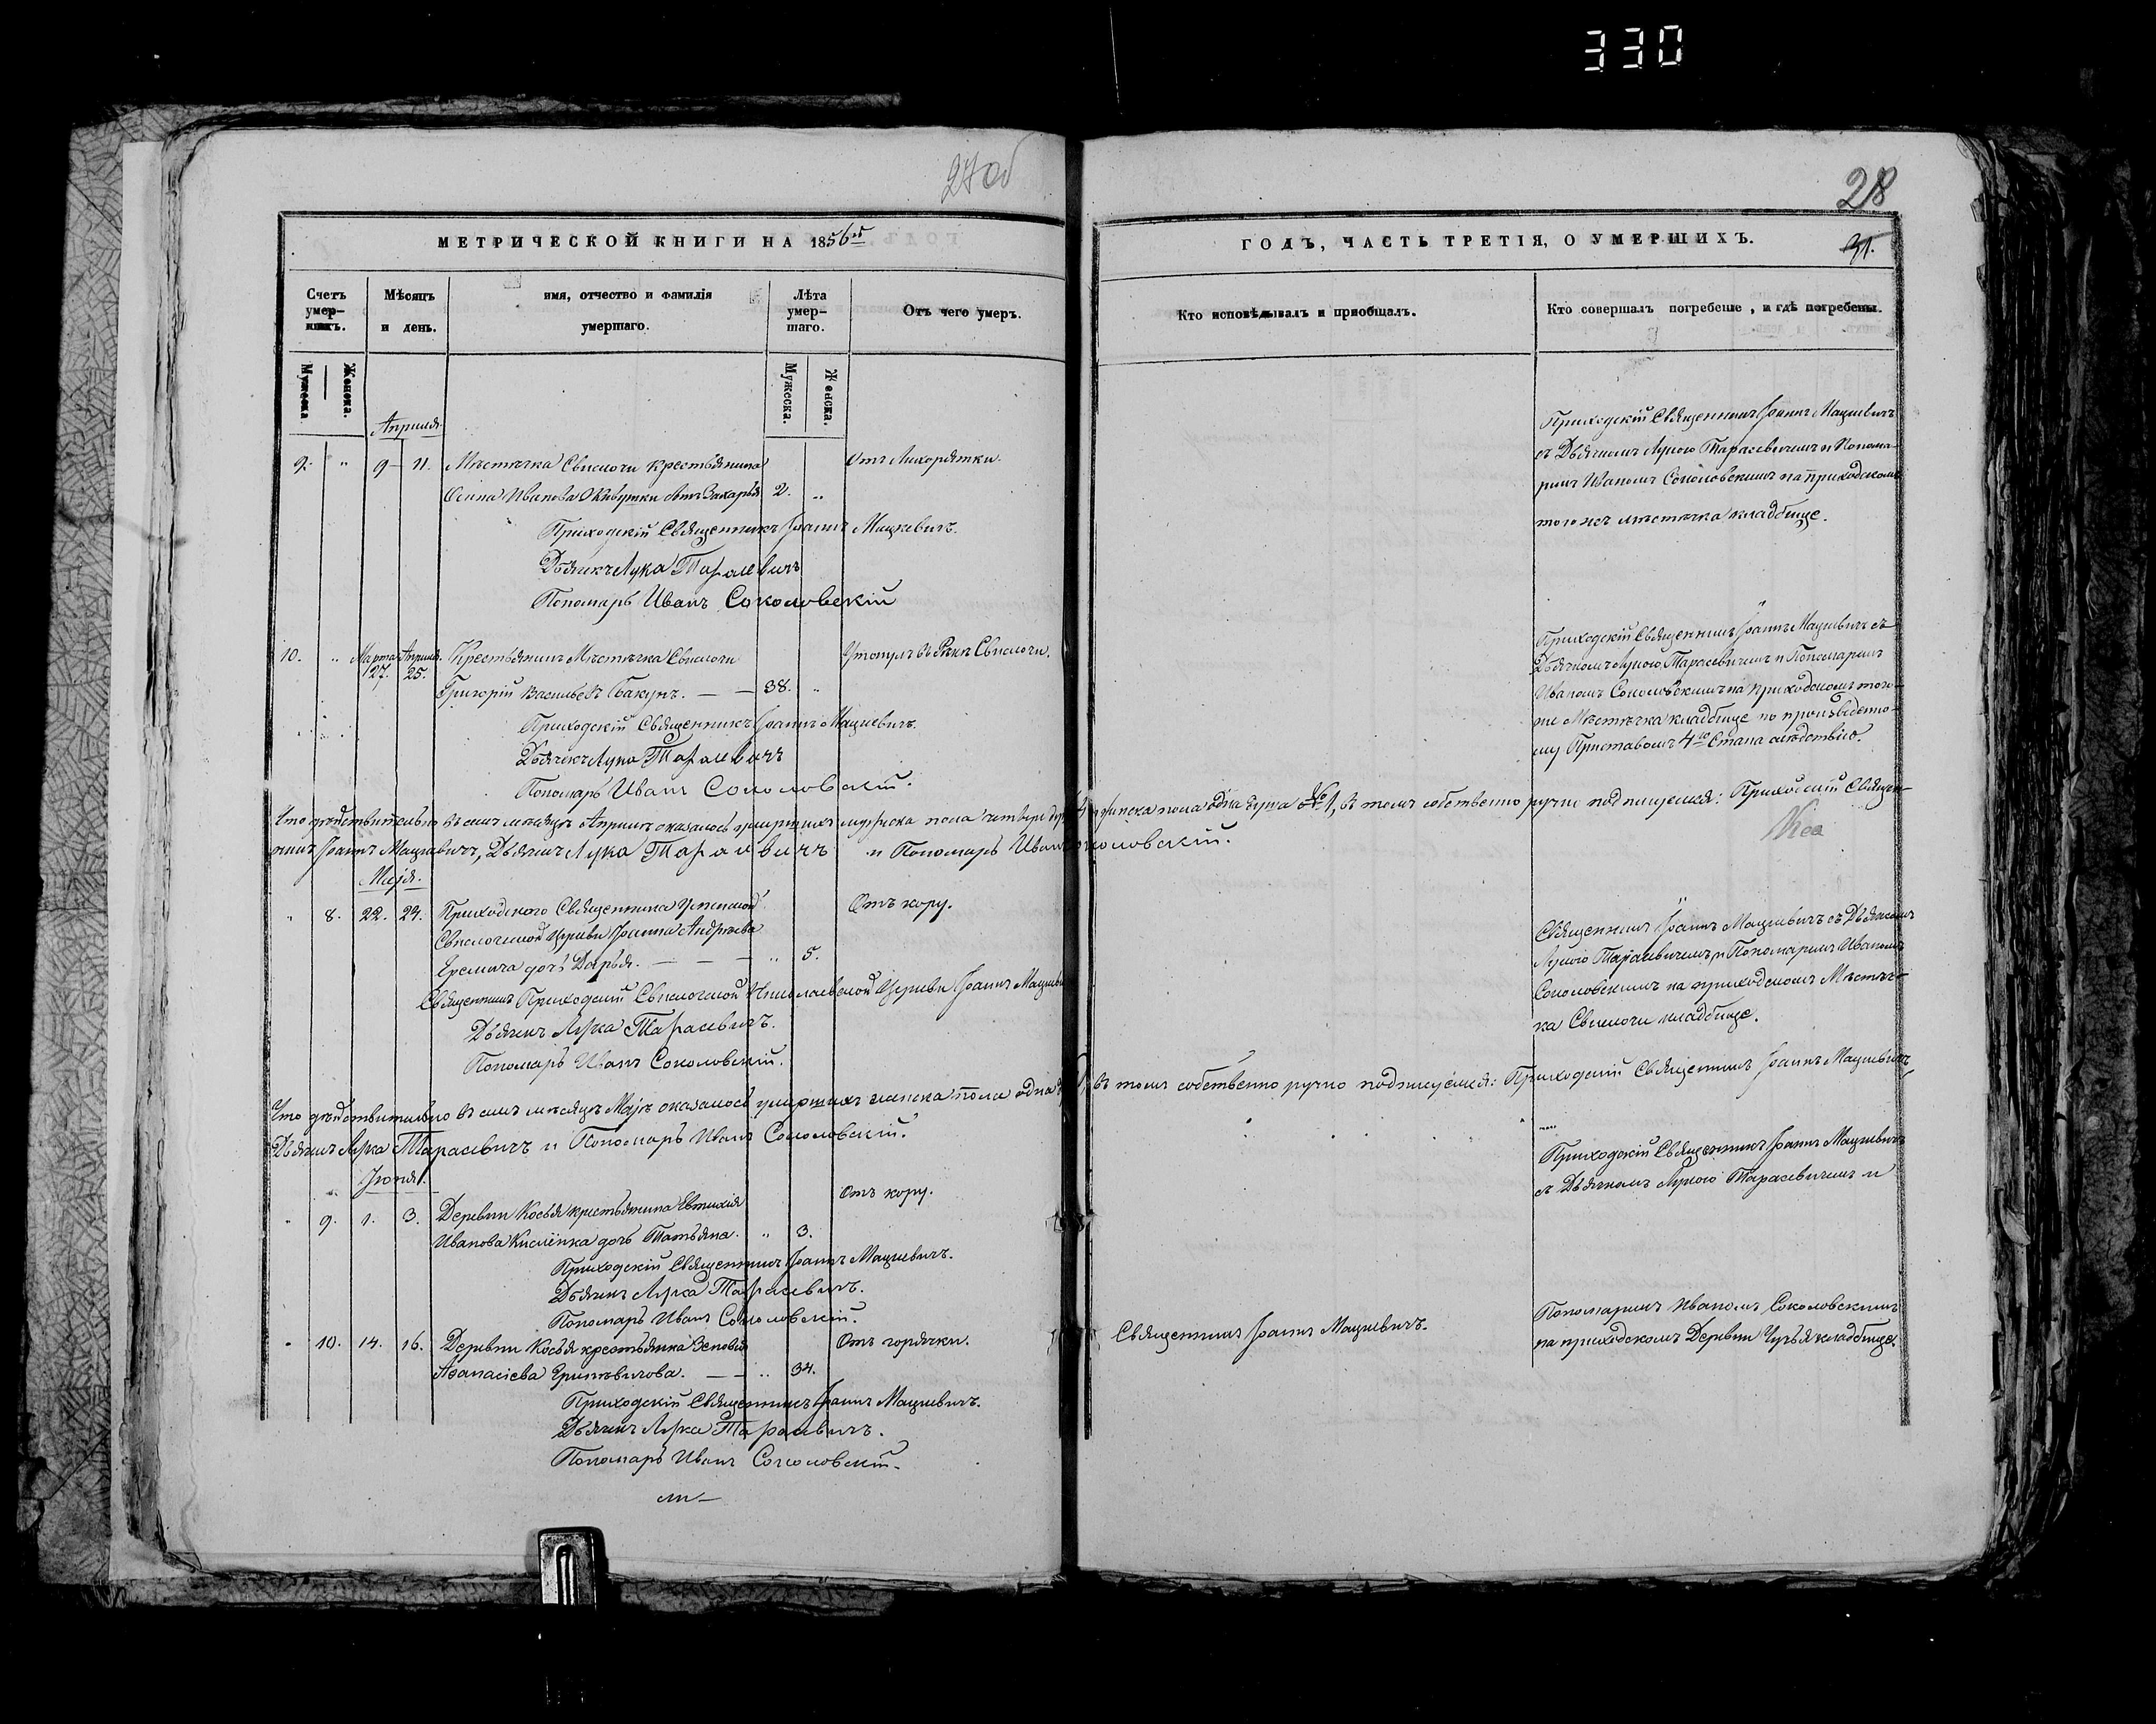 330
27об
28
МЕТРИЧЕСКОЙ КНИГИ НА 1856й
ГОДЪ, ЧАСТЬ ТРЕТІЯ, О УМЕРШИХЪ.
31.
Счетъ умер-шихъ.
Мѣсяцъ и день.
имя, отчество и фамилія умершаго.
Лѣта умер-шаго.
Отъ чего умеръ.
Кто исповѣдывалъ и приобщалъ.
Кто совершалъ погребеніе, и гдѣ погребены.
Мужеска
Женска.
Мужеска.
Женска.
Апрѣля.
9. " 9 11. Мѣстечка Свислочи крестьянина
Отъ Лихорадки.
Осипа Иванова сынъ Захарья 2. "
Приходскій Священникъ Іоаннъ Мацкевичъ.
Дьячекъ Лука Тарасевичъ
Пономарь Иванъ Соколовскій
Приходскій Священникъ Іоаннъ Мацкевичъ
съ Дьячкомъ Лукою Тарасевичемъ и Понома-
ремъ Иваномъ Соколовскимъ на приходскомъ
тогожъ мѣстечка кладбище.
10. " Марта 27. Апрѣля 25. Крестьянинъ Мѣстечка Свислочи
Утонулъ въ Рѣкѣ Свислочи.
Григорій Васильевъ Бакунъ. — — 38. "
Приходскій Священникъ Іоаннъ Мацкевичъ.
Дьячекъ Лука Тарасевичъ
Пономарь Иванъ Соколовскій.
Приходскій Священникъ Іоаннъ Мацкевичъ съ
Дьячкомъ Лукою Тарасевичемъ и Пономаремъ
Иваномъ Соколовскимъ на приходскомъ того-
же Мѣстечка кладбище по произведенно-
му Приставомъ 4го Стана слѣдствію.
Что дѣйствительно въ семъ мѣсяцѣ Апрѣлѣ оказалось умершихъ мужеска пола четыре женска пола одна душа № 1, въ томъ собственно ручно подписуемся: Приходскій Священ-
никъ Іоаннъ Мацкевичъ, Дьячекъ Лука Тарасевичъ и Пономарь Иванъ Соколовскій.
Маія.
" 8. 22. 24. Приходского Священника Успенской
Отъ кору.
Свислочской Церкви Іоанна Андреева
Еремича дочь Дарья. — — — " 5.
Священникъ Приходскій Свислочской Николаевской Церкви Іоаннъ Мацкевичъ
Дьячекъ Лука Тарасевичъ.
Пономарь Иванъ Соколовскій.
Священникъ Іоаннъ Мацкевичъ съ Дьячкомъ
Лукою Тарасевичемъ, и Пономаремъ Иваномъ
Соколовскимъ на приходскомъ Мѣстеч-
ка Свислочи кладбище.
Что дѣйствительно въ семъ мѣсяцѣ Маіѣ оказалось умершихъ женска пола одна въ томъ собственно ручно подписуемся: Приходскій Священникъ Іоаннъ Мацкевичъ,
Дьячекъ Лука Тарасевичъ и Пономарь Иванъ Соколовскій.
Іюня.
" 9. 1. 3. Деревни Косья крестьянина Евтихія
Отъ кору.
Иванова Киселёнка дочь Татьяна. " 3.
Приходскій Священникъ Іоаннъ Мацкевичъ.
Дьячекъ Лука Тарасевичъ.
Пономарь Иванъ Соколовскій.
Приходскій Священникъ Іоаннъ Мацкевичъ
съ Дьячкомъ Лукою Тарасевичемъ и
" 10. 14. 16. Деревни Косья крестьянка Зеновія
Отъ горячки.
Аѳанасіева — — " 34.
Приходскій Священникъ Іоаннъ Мацкевичъ.
Дьячекъ Лука Тарасевичъ.
Пономарь Иванъ Соколовскій.
Священникъ Іоаннъ Мацкевичъ.
Пономаремъ Иваномъ Соколовскимъ
на приходскомъ Деревни кладбище.